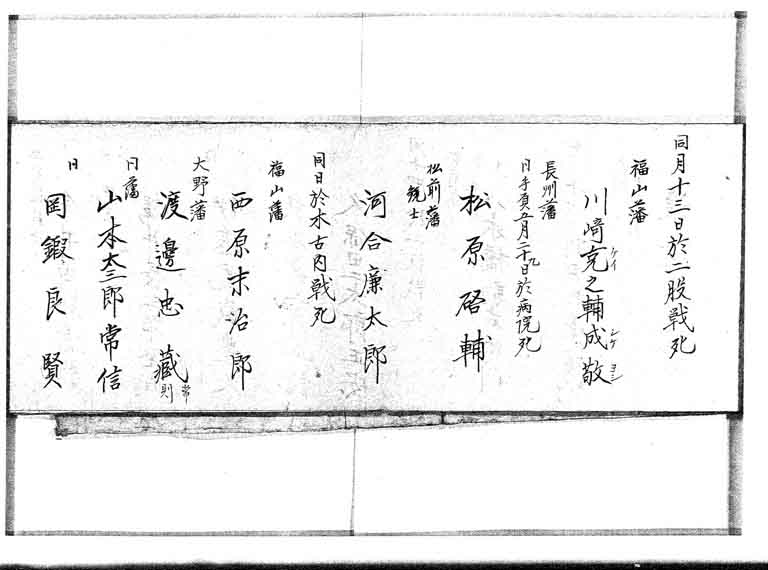 同月十三日於二股戦死
福山藩
川崎克之輔成敬
ケイ
シゲ
ヨシ
長州藩
同手負五月二十九日於病院死
松原啓輔
松前藩
銃士
河合廉太郎
同日於木古内戦死
福山藩
西原末治郎
大野藩
渡邊忠藏
常則
同藩
山本太三郎常信
同
岡鍜良賢